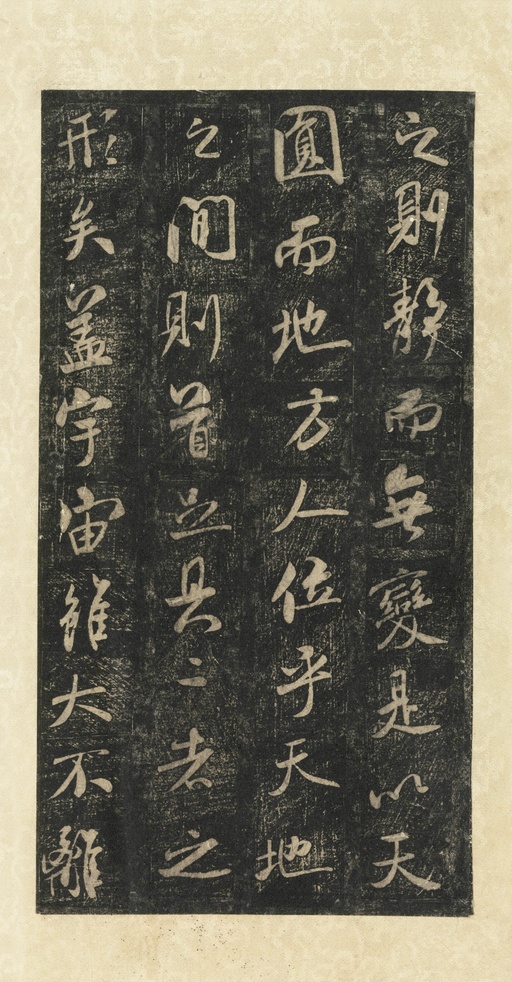 之則靜而無變是以天
圓而地方人位乎天地
之間則首足具二者之
形矣盖宇宙雖大不離